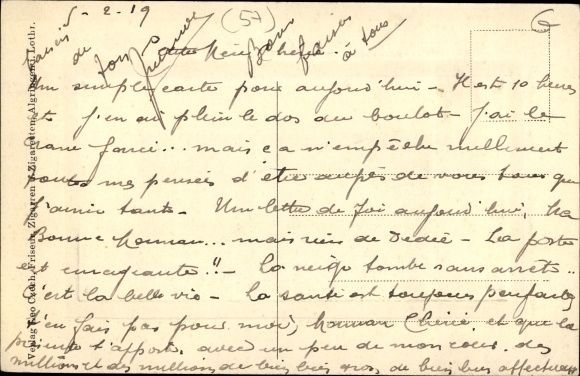 5-2-19
(57)
6
Bons baisers
à tous
ton
Chérie
Un simple carte pour aujourd'hui - Il est 10 heures
et j'en ai plein le dos du boulot - J'ai le
crane farci... mais ca n'empêche nullement
toutes mes pensées d'être auprès de vous tous que
j'aime tant - Un lettre de toi aujourd'hui, Ma
Bonne Maman... mais rien de Dédié - La poste
est enrageante!! - La neige tombe sans arrêt..
C'est la belle vie - La santé est toujours parfaite
t'en fais pas pour moi, Maman Chérie et que la
présente t'apporte avec un peu de mon cœur des
millions et des millions de bien bien gros, de bien bien affectueux
Verlag Leo Czech, Friseur, Zigarren & Zigaretten, Algringen i. Lothr.